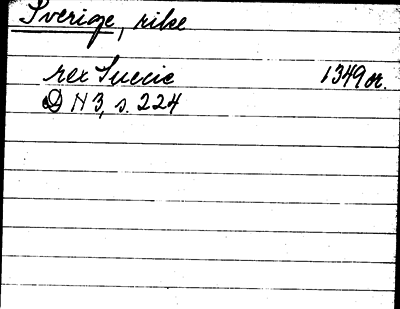 Sverige, rike
rex Suecie 1349 or.
DN 3, s. 224